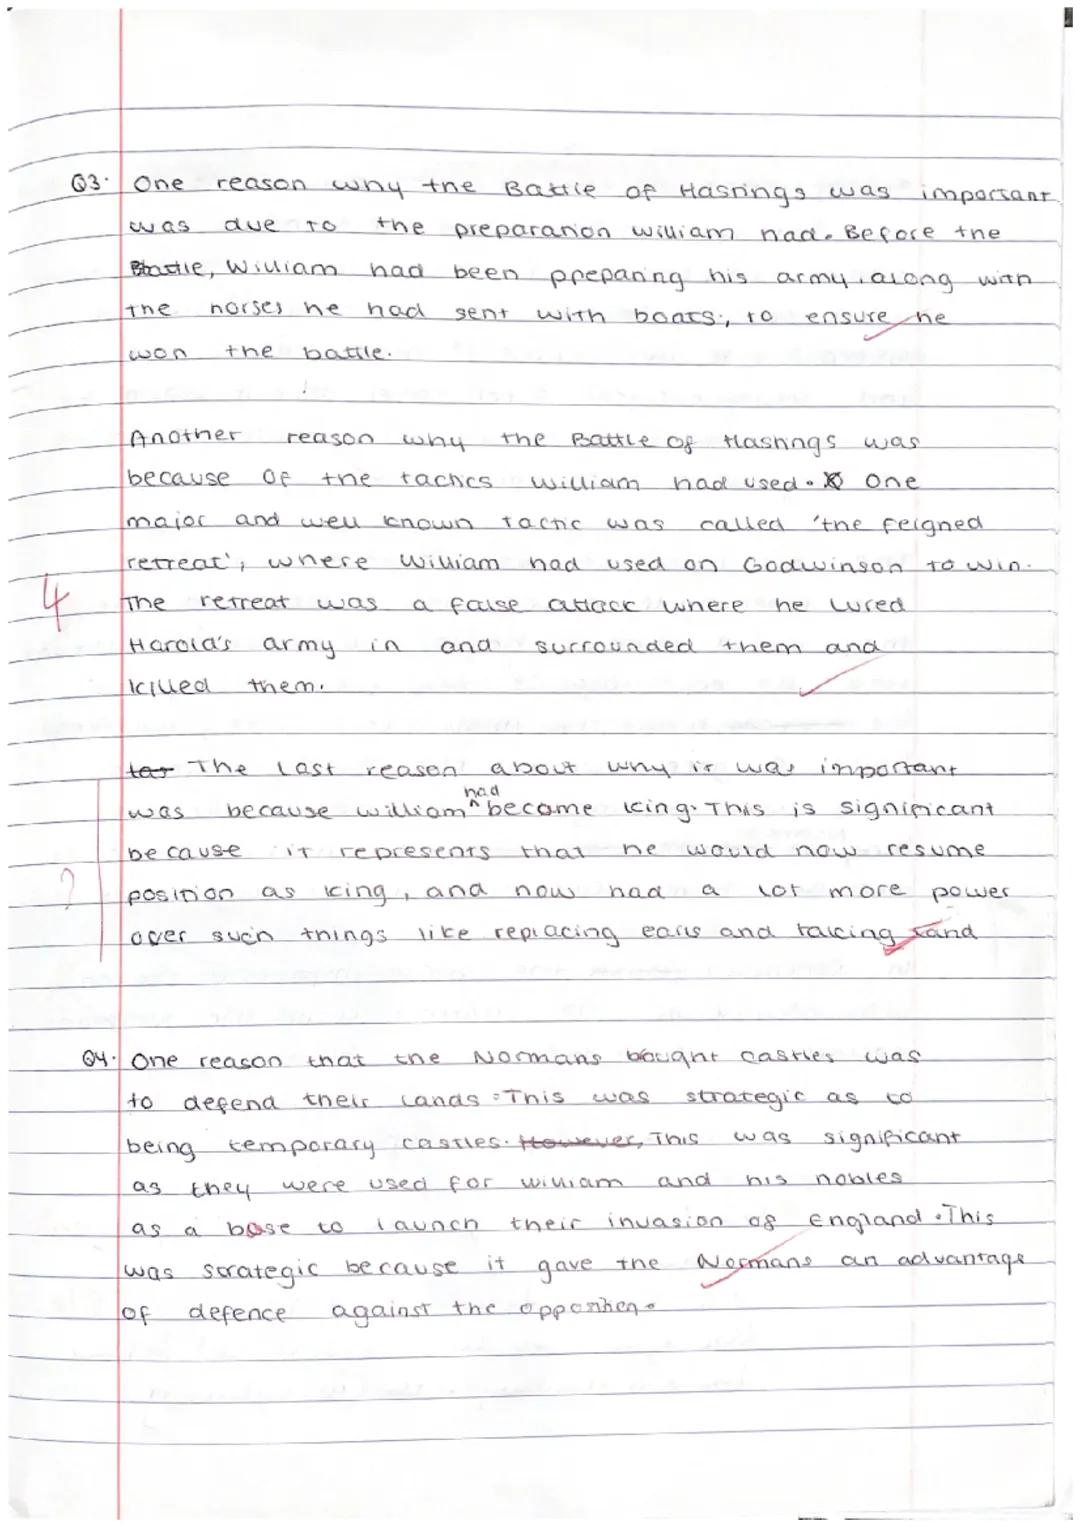 Q3. One reason why the Battle of Hastings was important
was due to the preparation william had. Before the
Battle, William had been ppreparing his army, along with
the horses he had sent with boats, to ensure he
won the battle.
Another reason why the Battle of Hastings was
because of the tactics william had used. One
major and well known tactic was called 'the feigned
retreat', where William had used on Godwinson to win.
4
The retreat was a false attack where he lured
Harold's army in and surrounded them and
killed them.
The last reason about why it was important
had
was because william ^ become king. This is significant
because it represents that he would now resume
?
position as king, and now had a lot more power
over such things like replacing earls and taking land
Q4. One reason that the Normans bought castles was
to defend their lands. This was strategic as to
being temporary castles. However, This was significant
as they were used for william and his nobles
as a base to launch their invasion of England. This
was strategic because it gave the Normans an advantage
of defence against the